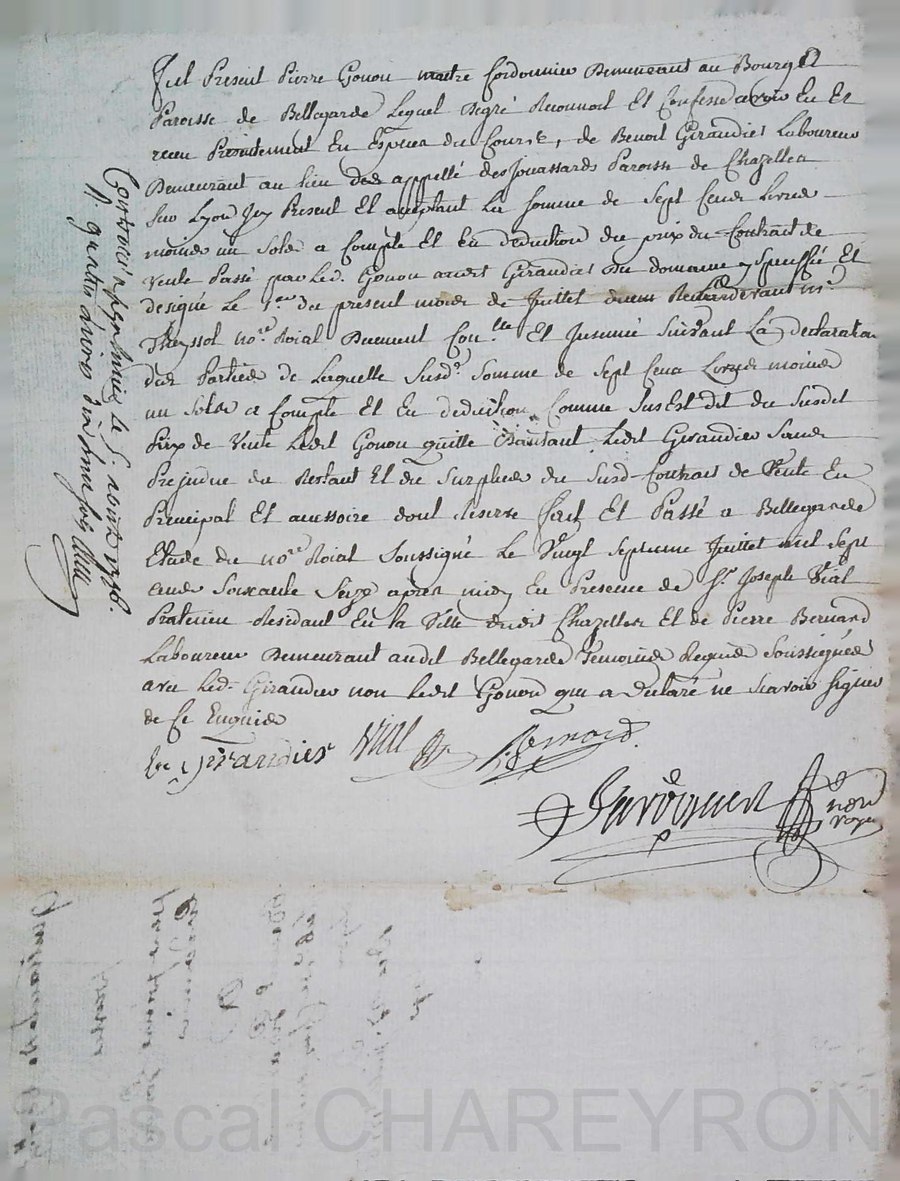 Fut Present Pierre Gonon maitre Cordonnier Demeurant au Bourg Et
Paroisse de Bellegarde Lequel degré Reconnoit Et Confesse avoir Eu Et
receu Presentement En Especes du Cours, de Benoit Girandier Laboureur
Demeurant au lieu appellé des Jouassards Paroisse de Chazelles
Sur Lyon Jcy Present Et aceptant La Somme de Sept Cens Livres
moins un Sols a Compte Et En deduction du prix du Contrat de
Vente Passé par Led. Gonon audit Girandier Du domaine y Speciffié Et
designé Le du present mois de Juillet devant me.
Theyssot no.re Roial Duement Con.lle Et Jnsinué Suivant La declaration
des Parties de Laquelle Susd.e Somme de Sept Cens Livres moins
un Sols a Compte Et En deduction Comme Sus Est dit du Susdit
Prix de Vente Ledit Gonon quitte D'autant Ledit Girandier Sans
Prejudice du Restant Et du Surplus du Susd. Contrat de Vente En
Principal Et accessoire dont Reserve Fait Et Passé a Bellegarde
Etude du no.re Roial Soussigné Le Vingt Septieme Juillet mil Sept
Cens Soixante Seize après midy En Presence de Sr. Joseph Vial
Praticien Residant En la Ville dudit Chazelles Et de Pierre Bernard
Laboureur Demeurant audit Bellegarde Temoins Requis Soussignés
avec Led. Girandier non Ledit Gonon qui a declaré ne Scavoir Signer
de Ce Enquis
girandier Vial Bernard
nore
royal
Controlé a le 5. aout 1776.
R. quatre livres dix sols
Pascal CHAREYRON